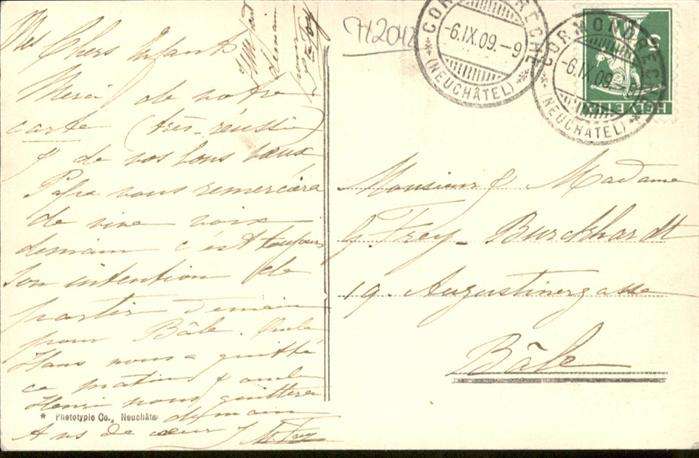 Mes Chers Enfants
Merci de votre
carte (très-réussie)
& de vos bons vœux
Papa vous remerciera
de vive voix
demain c'est toujours
son intention de
partir demain
pour Bâle. Oncle
Hans nous a quitté
ce matin & oncle
Henri nous quittera
demain
* Phototypie Co., Neuchâtel
A vs de cœur
74204
CORMONDRÈCHE
-6.IX.09.-9
(NEUCHÂTEL)
CORMONDRÈCHE
-6.IX.09.-9
(NEUCHÂTEL)
HELVETIA
5
Monsieur & Madame
G. Frey-Burckhardt
19. Augustinergasse
Bâle